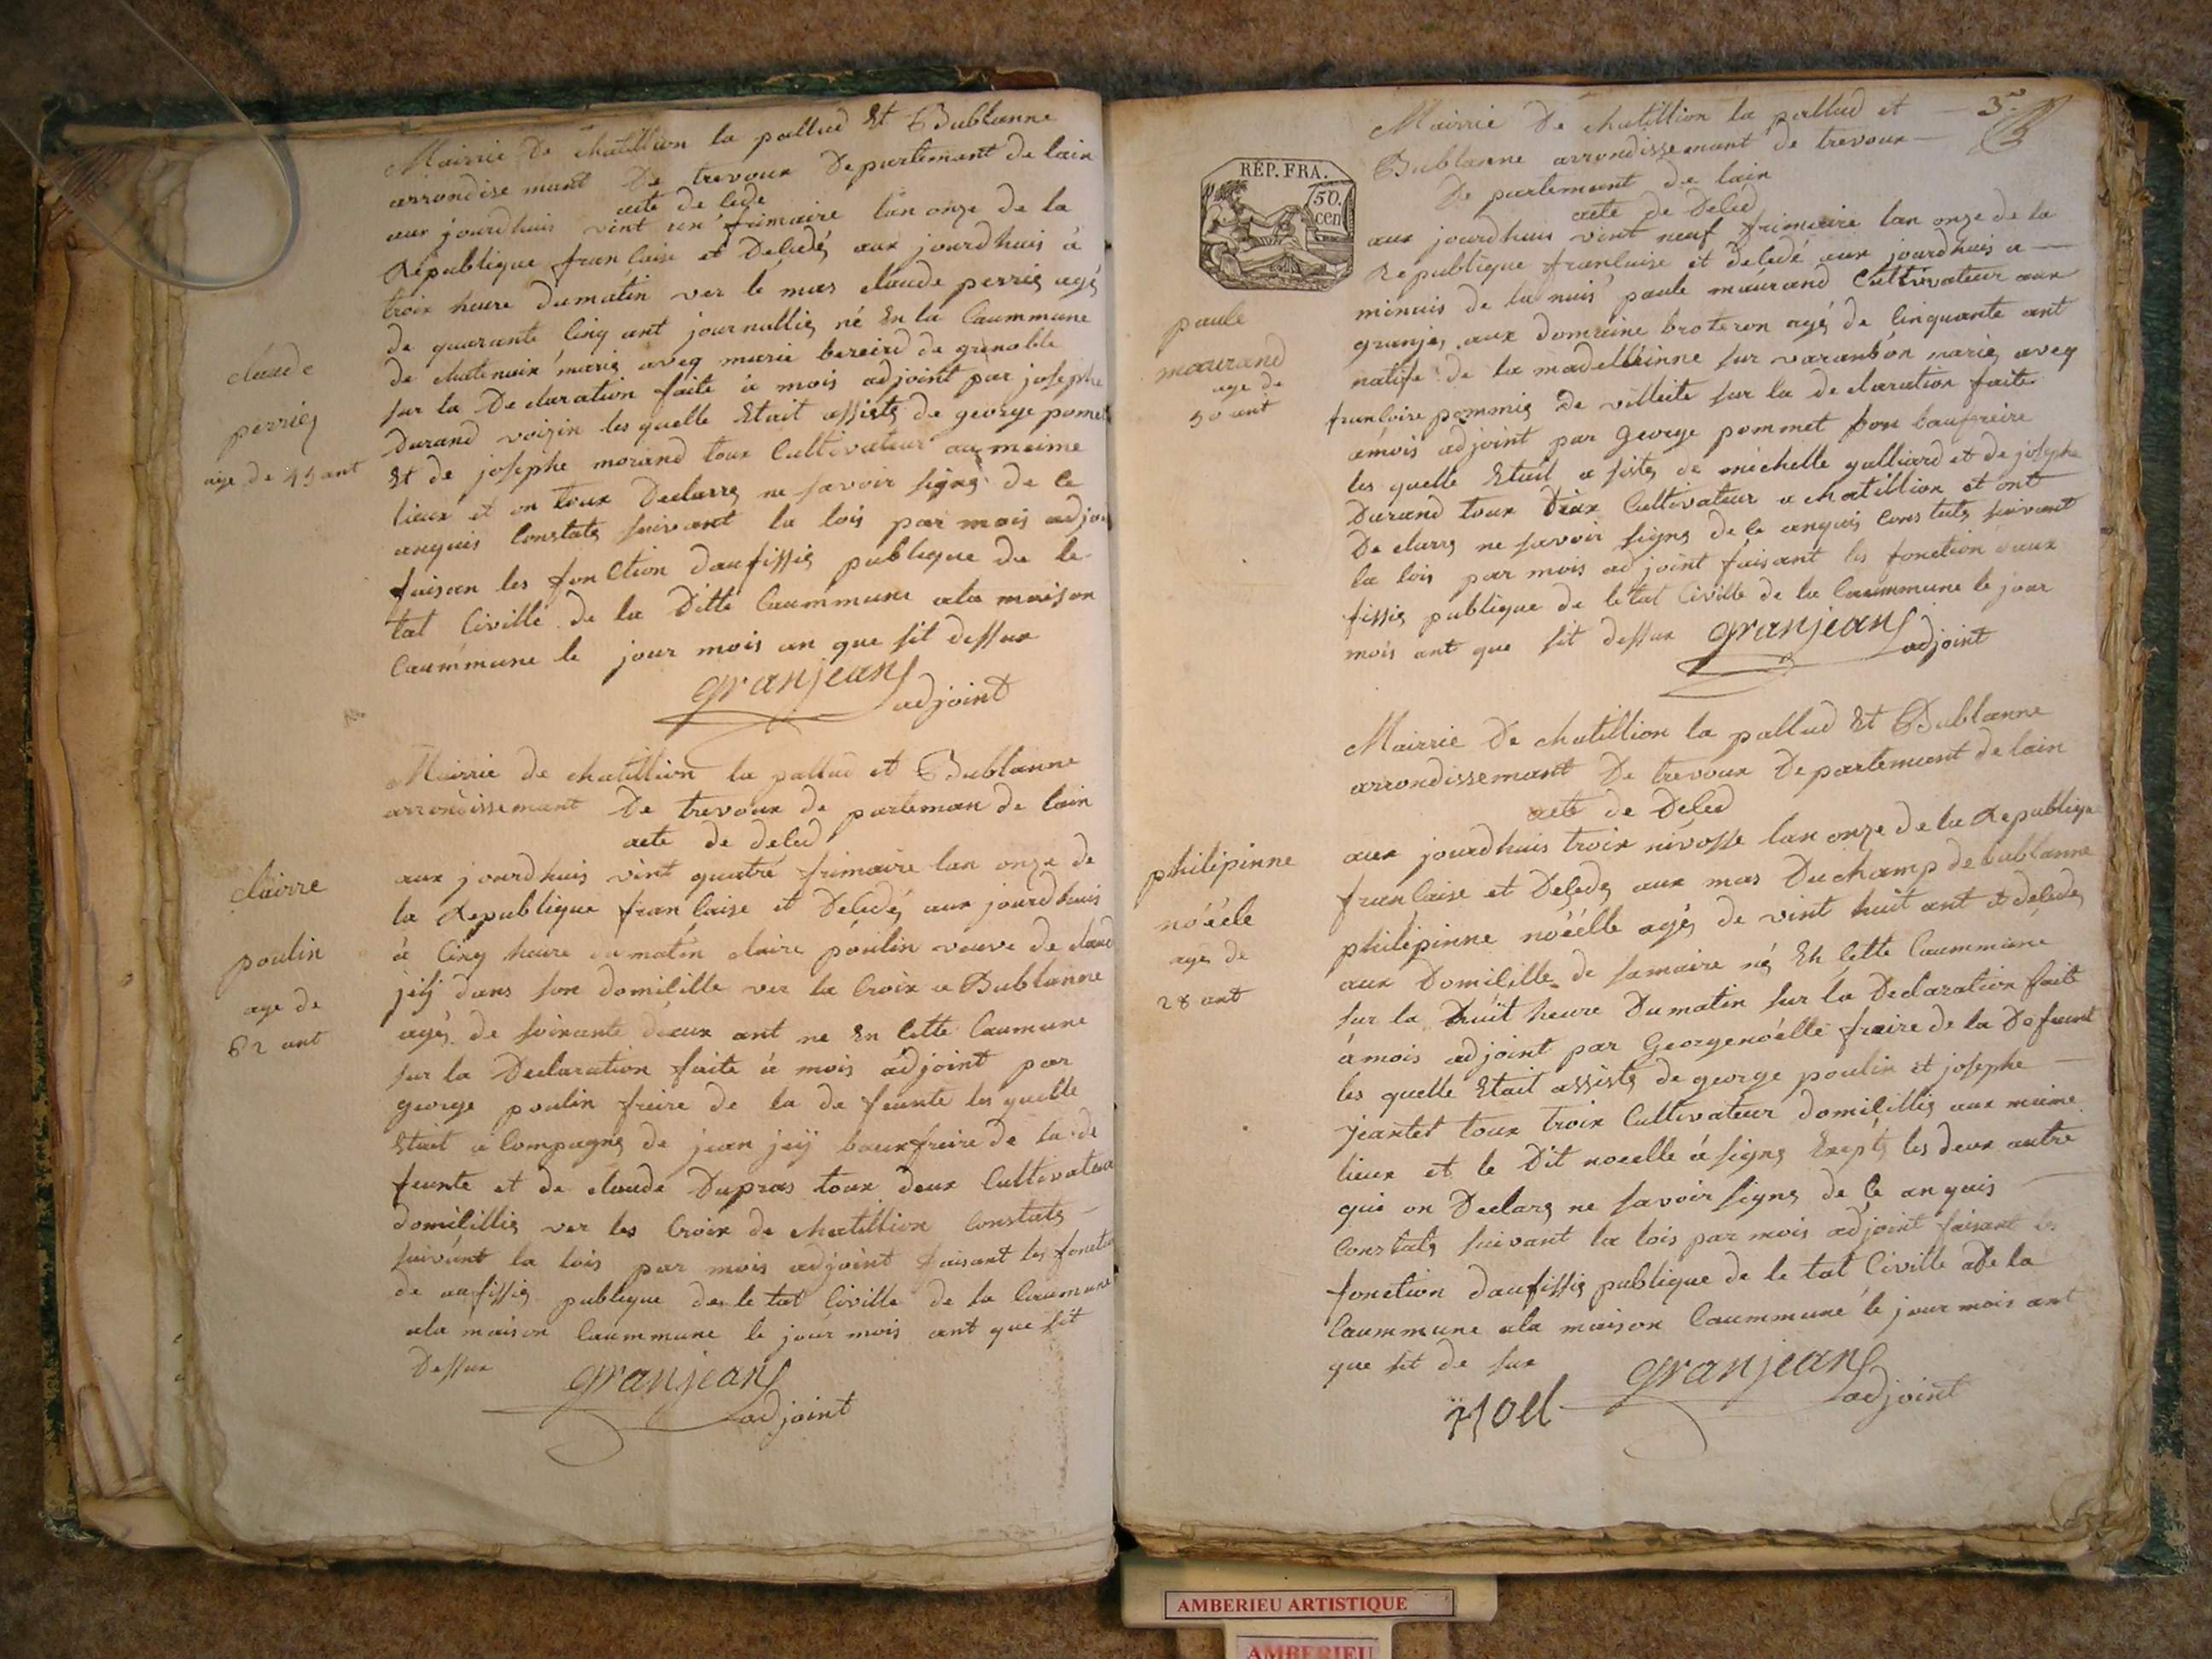 Mairrie De chatillion la pallud Et Bublanne
arrondisemant De trevoux Departemant de lain
acte de dede
aux jourdhuis vint un frimaire lan onze de la
Republique francaise et Deledé aux jourdhuis à
troix heure dumatin ver le mas claude perrie agé
de quarante cinq ant journallie né En la Caummune
de chatenaix marie aveq marie bereird de grenoble
sur la Declaration faite à mois adjoint par josephe
Durand voizin les quelle Etait assiste de george pomet
Et de josephe morand toux Cultivateur au meime
lieux et on toux Declarre ne savoir signe de ce
anquis Constate suivant la lois par mois adjoi
faisan les fonction daufissie publique de le
tat Civille de la Ditte Caummune ala maison
Caummune le jour mois an que sit dessux
granjean
adjoint
claude
perrie
age de 45 ant
Mairrie de chatillion la pallud et Bublanne
arrondissemant De trevoux de parteman de lain
acte de deled
aux jourdhuis vint quatre frimaire lan onze de
la Republique francaise et Deledé aux jourdhuis
à cinq heure du matin claire poulin veuve de claud
jeij dans son domilille ver la Croix a Bublanne
agé de soixante deaux ant ne En cette Caumune
sur la Declaration faite à mois adjoint par
george poulin freire de la de feunte les quelle
Etait a Compagne de jean jeij beauxfreire de la de
feunte et de claude Dupras toux deux Cultivateur
domilillie ver les Croix de chatillion Constate
suivant la lois par mois adjoint faisant les foncti
de aufissie publique de le tat Civille de la Caumune
ala maison Caummune le jour mois ant que sit
Dessux
granjean
adjoint
clairre
poulin
age de
62 ant
3
Mairrie De chatillion la pallud et
Bublanne arrondissemant de trevoux
De partemant de lain
acte de Deled
RÉP. FRA.
50.
cen
aux jourdhuis vint neuf frimaire lan onze de la
Republique francaise et deledé aux jourdhuis a
minuis de la nuis paule maurand Cultivateur aux
granjes aux domaine broteron agé de Cinquante ant
natife de la madelleinne sur varanbon marie aveq
francoire pommie de villeite sur la de claration faite
àmois adjoint par George pommet son baufreire
les quelle Etait a siste de michelle galliard et de josephe
Durand toux deux Cultivateur a chatillion et ont
De clarre ne savoir signe de ce anquis Constate suivant
la lois par mois adjoint faisant les fonction daux
fissie publique de letat Civille de la Caummune le jour
mois ant que sit dessux granjean
adjoint
paule
maurand
age de
50 ant
Mairrie De chatillion la pallud Et Bublanne
arrondissemant De trevoux Departemant de lain
acte de Deled
aux jourdhuis troix nivosse lan onze de la Republique
francaise et Delede aux mas Duchamp de bublanne
philipinne noéélle agé de vint huit ant et delede
aux Domilille de samaire né En cette Caummune
sur la Druit heure Dumatin sur la Declaration faite
àmois adjoint par Georgenoélle freire de la Defeunt
les quelle Etait assiste de george poulin et josephe
jeantet toux troix Cultivateur domilillie aux meime
lieux et le Dit noeelle à signe Exepte les deux autre
qui on Declare ne savoir signe de ce anquis
Constate suivant la lois par mois adjoint faisant les
fonction daufissie publique de le tat Civille de la
Caummune ala maison Caummune le jour mois ant
que sit de sux
granjean
adjoint
noel
philipinne
noéele
age de
28 ant
AMBERIEU ARTISTIQUE
AMBERIEU